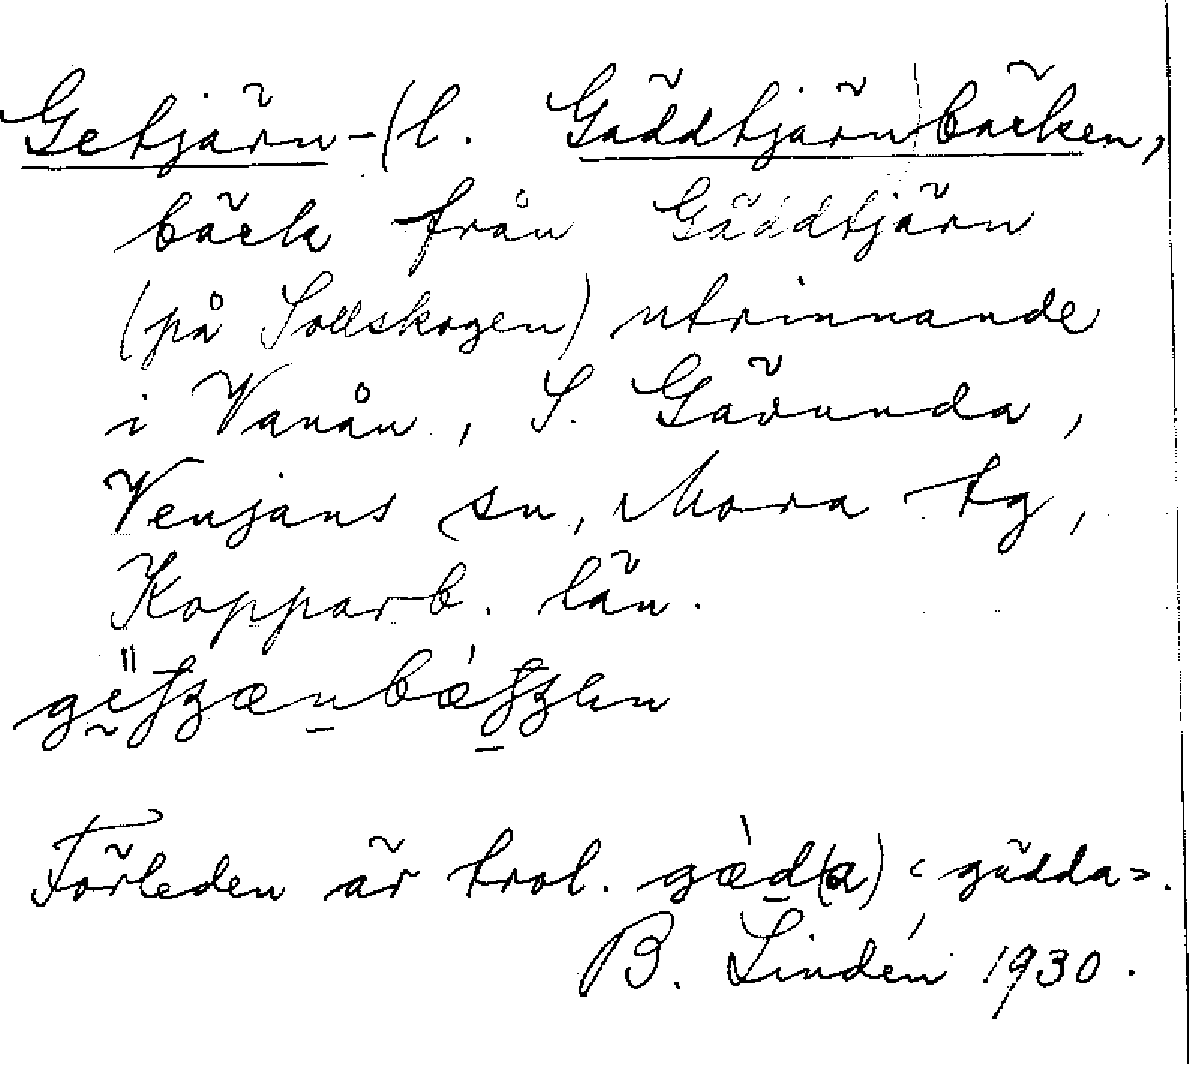 Getjärn-(l. Gäddtjärnbäcken,
bäck från Gäddtjärn
(på Sollskogen) utrinnande
i Vanån, S. Gävunda,
Venjans sn, Mora tg,
Kopparb. län.
Förleden är trol. gæ̀d(a) ‹gädda›.
B. Lindén 1930.